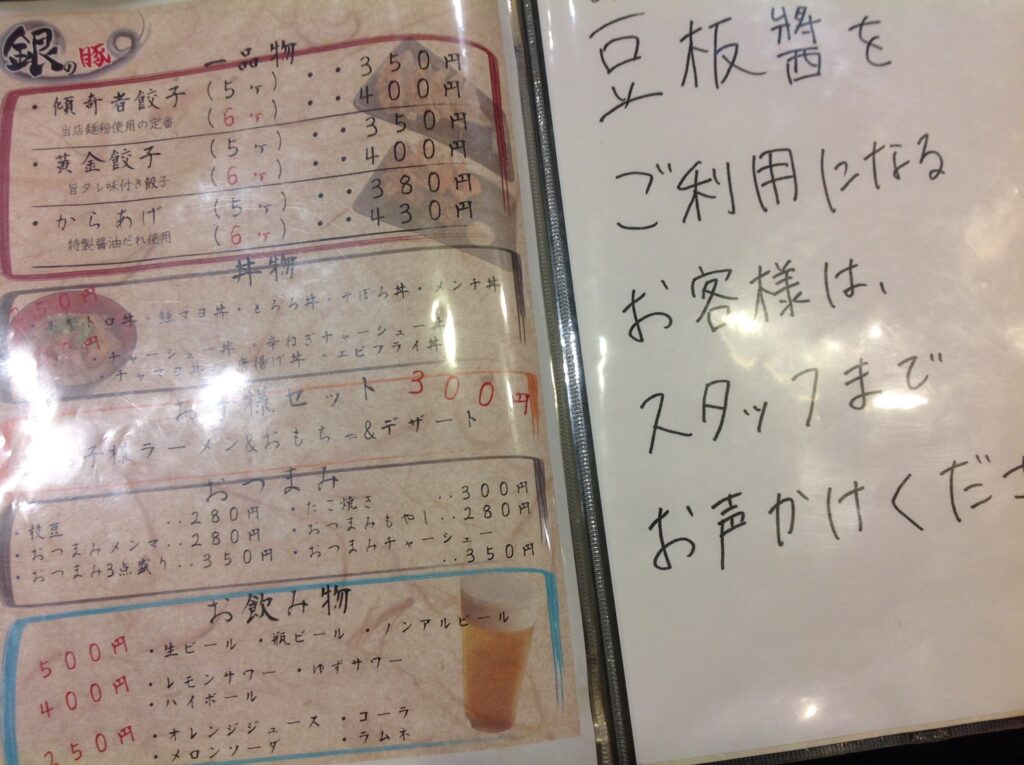 銀の豚
一品物
・傾奇者餃子 (5ヶ) ・・350円
当店麺粉使用の定番 (6ヶ) ・・400円
・黄金餃子 (5ヶ) ・・350円
旨タレ味付き餃子 (6ヶ) ・・400円
・からあげ (5ヶ) ・・380円
特製醤油だれ使用 (6ヶ) ・・430円
丼物
50円
・ネギトロ丼・鮭マヨ丼・とろろ丼・そぼろ丼・メンチ丼
円
・チャーシュー丼・辛ねぎチャーシュー丼
・チャマヨ丼・唐揚げ丼・エビフライ丼
お子様セット 300円
子様ラーメン&おもちゃ&デザート
おつまみ
・枝豆 ‥280円 ・たこ焼き ‥300円
・おつまみメンマ‥280円 ・おつまみもやし‥280円
・おつまみ3点盛り‥350円 ・おつまみチャーシュー
‥350円
お飲み物
500円 ・生ビール ・瓶ビール ・ノンアルビール
400円 ・レモンサワー ・ゆずサワー
・ハイボール
250円 ・オレンジジュース ・コーラ
・メロンソーダ ・ラムネ
豆板醤を
ご利用になる
お客様は、
スタッフまで
お声かけくださ